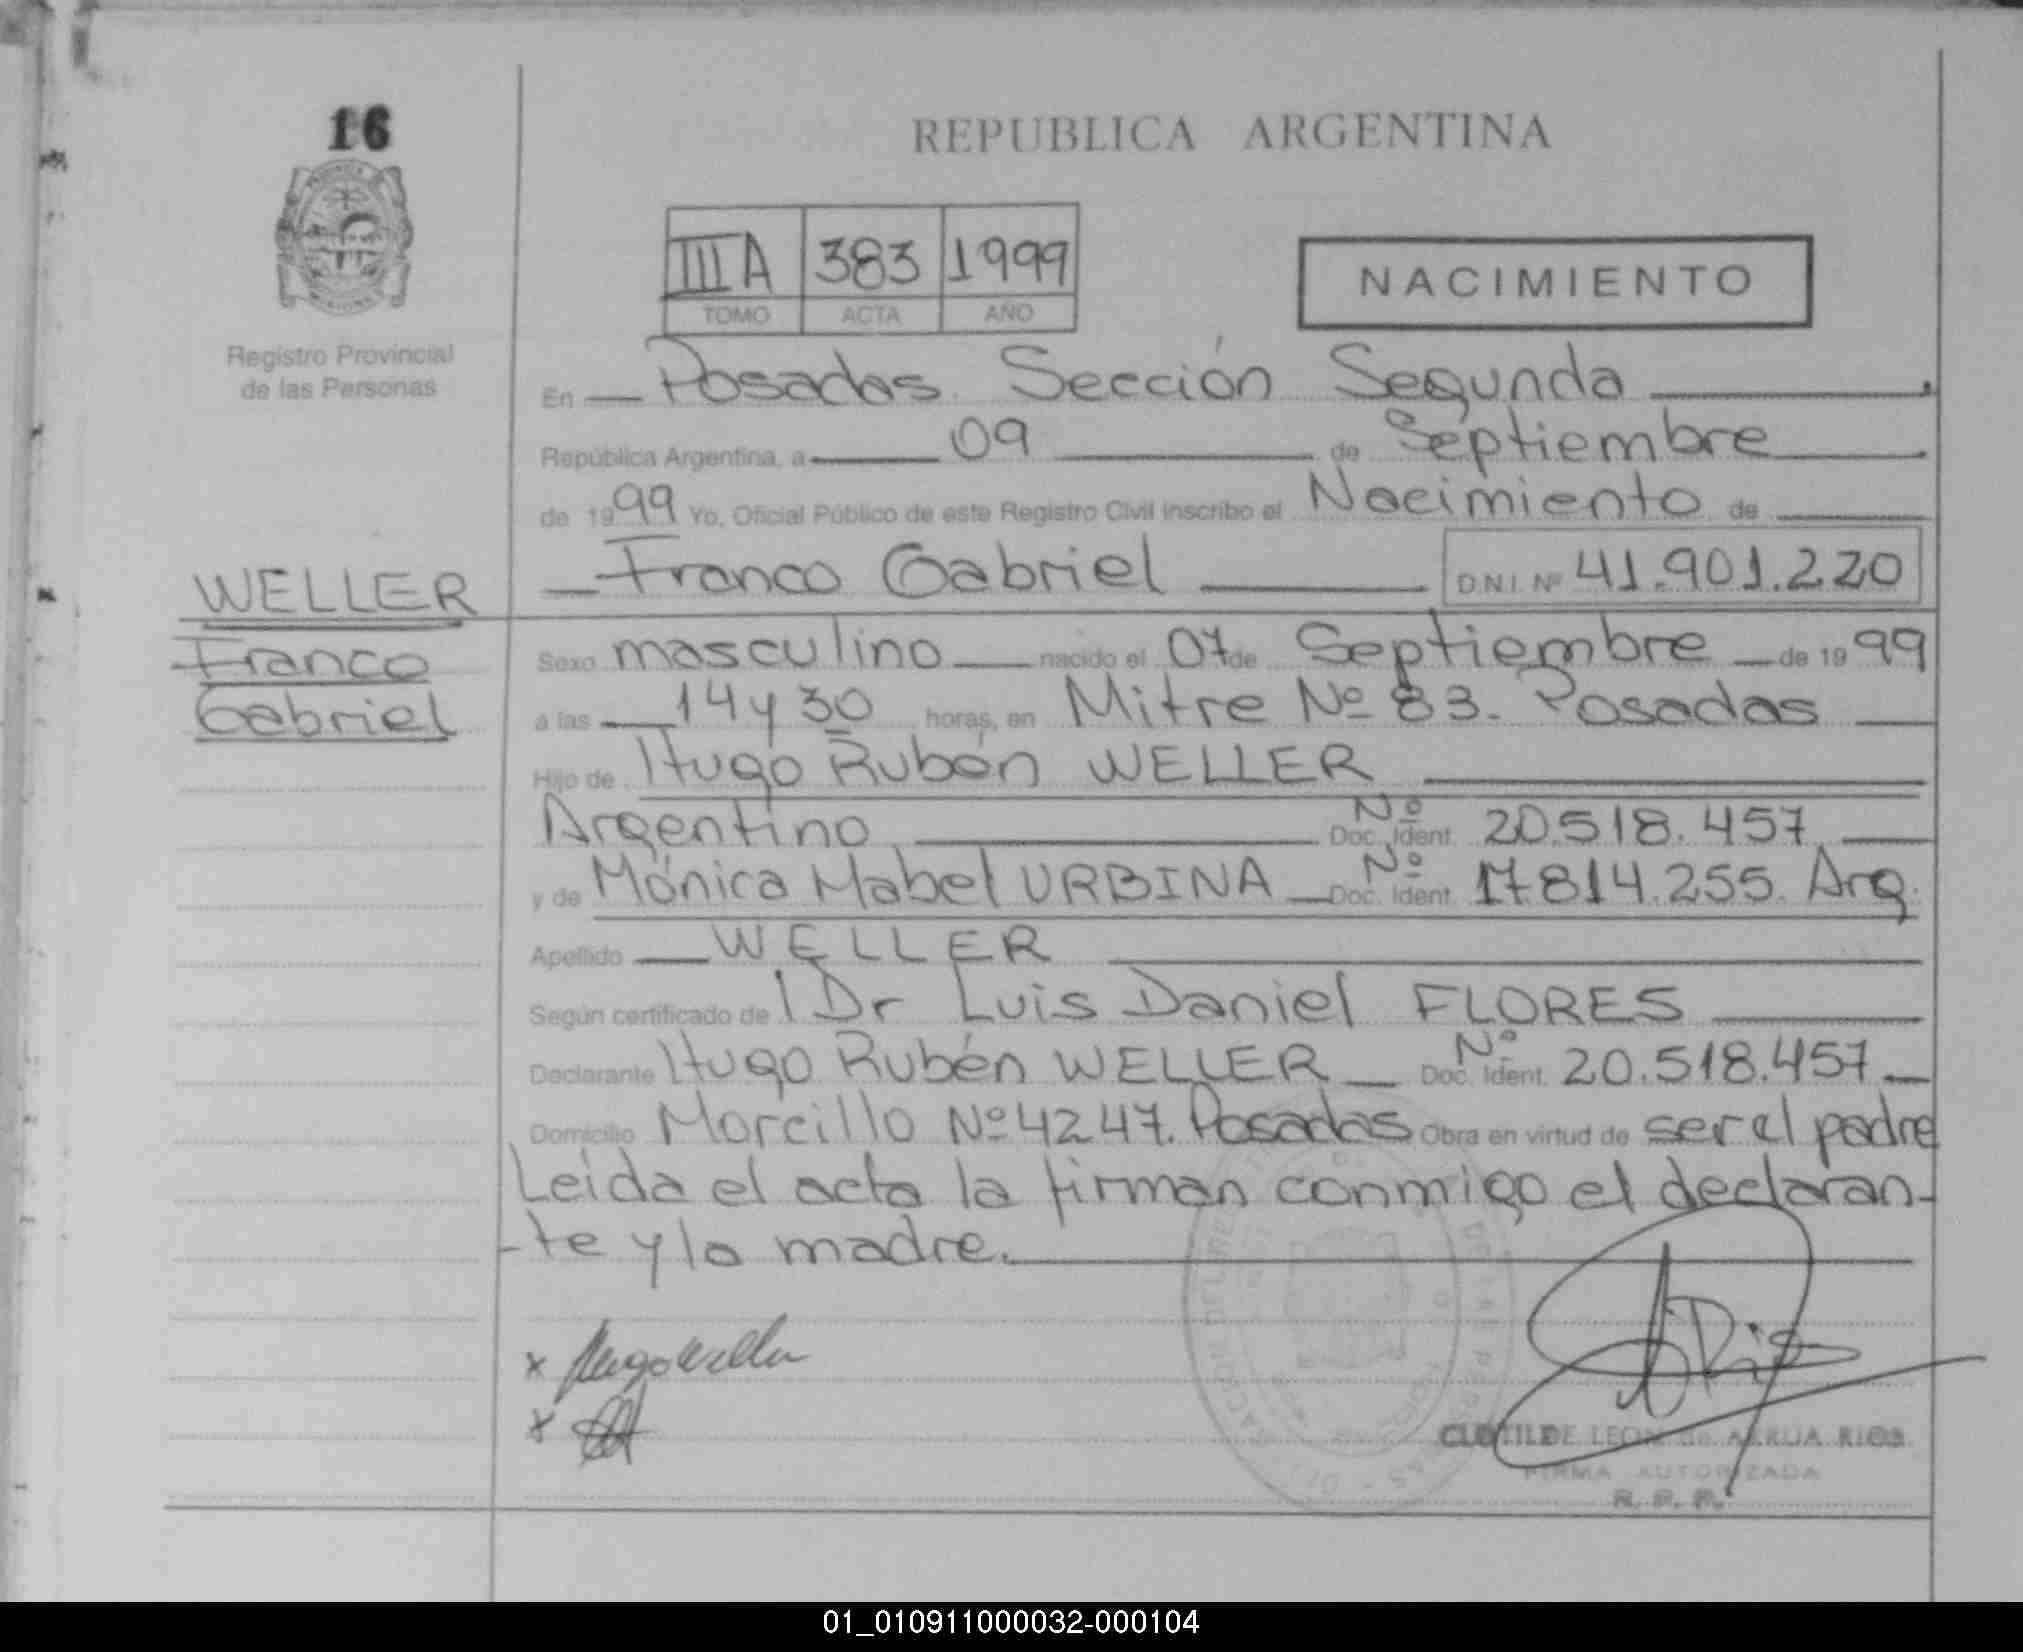 16
REPUBLICA ARGENTINA
III A 383 1999
TOMO ACTA AÑO
NACIMIENTO
Registro Provincial
de las Personas
En Posadas. Sección Segunda
República Argentina, a 09 de Septiembre
de 1999 Yo, Oficial Público de este Registro Civil inscribo el Nacimiento de
Franco Gabriel D.N.I. Nº 41.901.220
WELLER
Franco
Gabriel
Sexo masculino nacido el 07 de Septiembre de 1999
a las 14 y 30 horas, en Mitre Nº 83. Posadas
Hijo de Hugo Rubén WELLER
Argentino Doc. Ident. Nº 20.518.457
y de Mónica Mabel URBINA Doc. Ident. Nº 17.814.255. Arg.
Apellido WELLER
Según certificado de l Dr Luis Daniel FLORES
Declarante Hugo Rubén WELLER Doc. Ident. Nº 20.518.457
Domicilio Morcillo Nº 4247. Posadas Obra en virtud de ser el padre
Leida el acta la firman conmigo el declaran-
-te y la madre.
x Hugo Weller
x
CLOTILDE LEON de ARRUA RIOS
FIRMA AUTORIZADA
R. P. P.
01_010911000032-000104